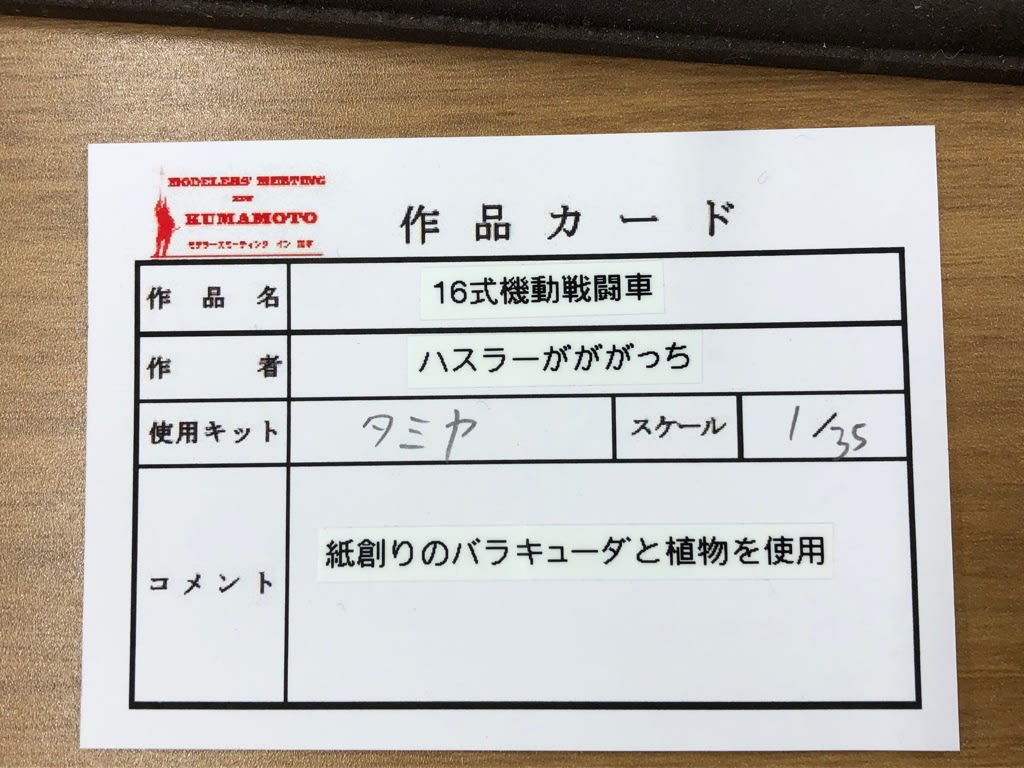 MODELERS' MEETING
IN
KUMAMOTO
モデラーズミーティング イン 熊本
作品カード
作品名 16式機動戦闘車
作者 ハスラーがががっち
使用キット タミヤ スケール 1/35
コメント 紙創りのバラキューダと植物を使用